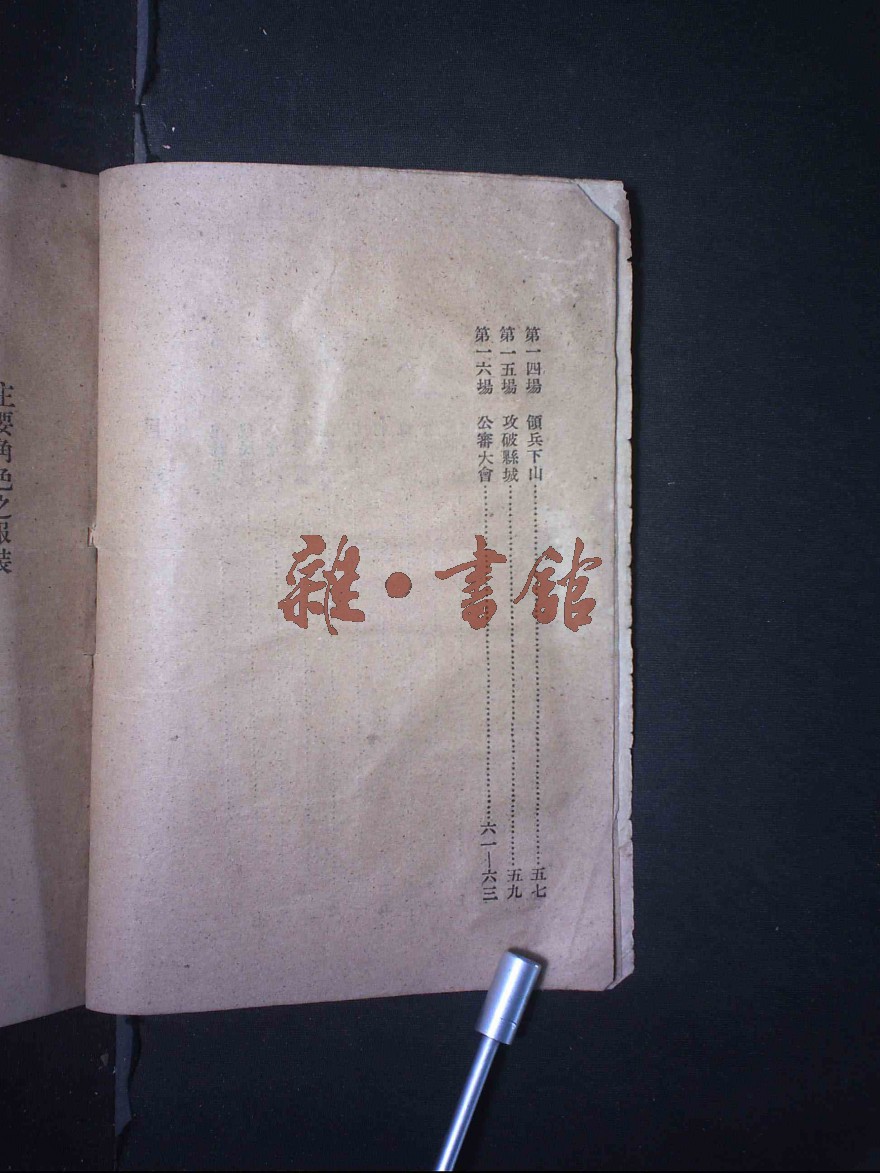 第一四場　領兵下山…………五七
第一五場　攻破縣城…………五九
第一六場　公審大會…………六一—六三
主要角色之服裝
雜·書館